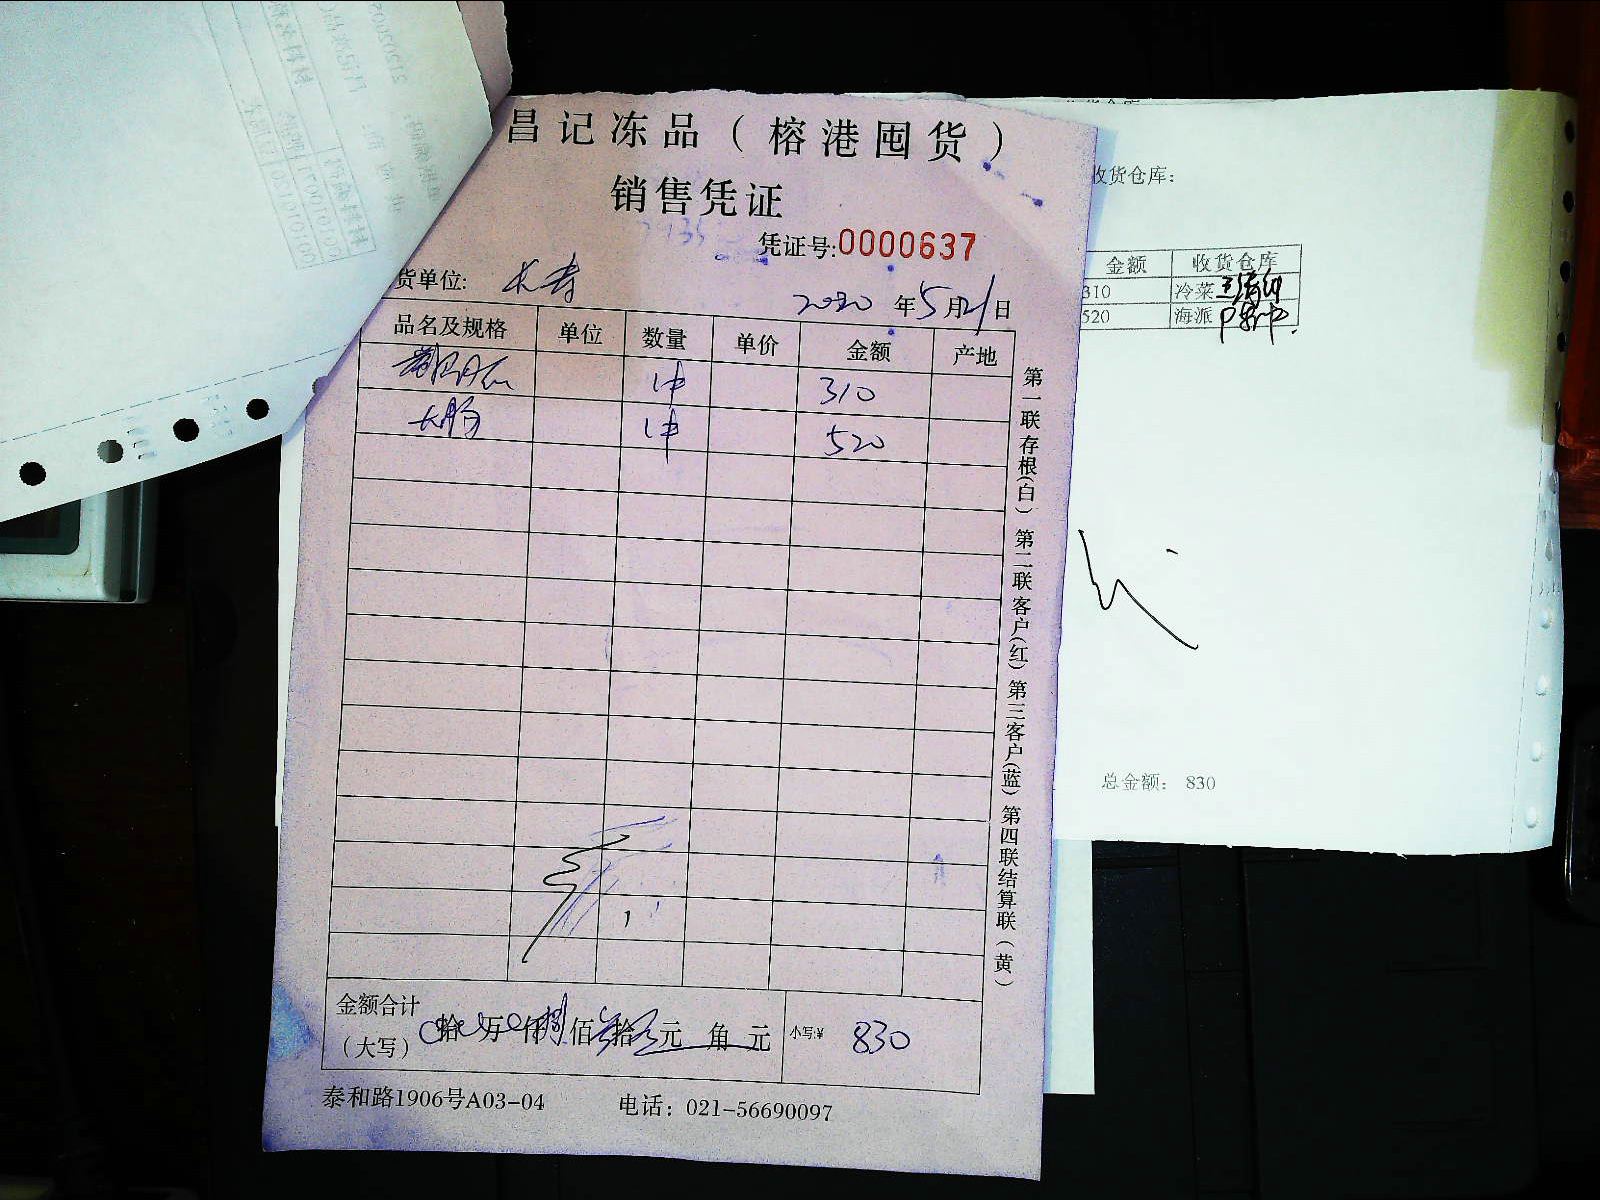 昌记冻品（榕港囤货）
销售凭证
凭证号:0000637
货单位: 长寿
2020 年 5 月 21 日
品名及规格 单位 数量 单价 金额 产地
1件 310
大肠 1件 520
第一联存根(白) 第二联客户(红) 第三客户(蓝) 第四联结算联(黄)
金额合计
(大写) 拾 万 仟 捌 佰 叁 拾 元 角 元 小写:¥ 830
泰和路1906号A03-04 电话：021-56690097
收货仓库:
金额 收货仓库
310 冷菜
520 海派
总金额: 830